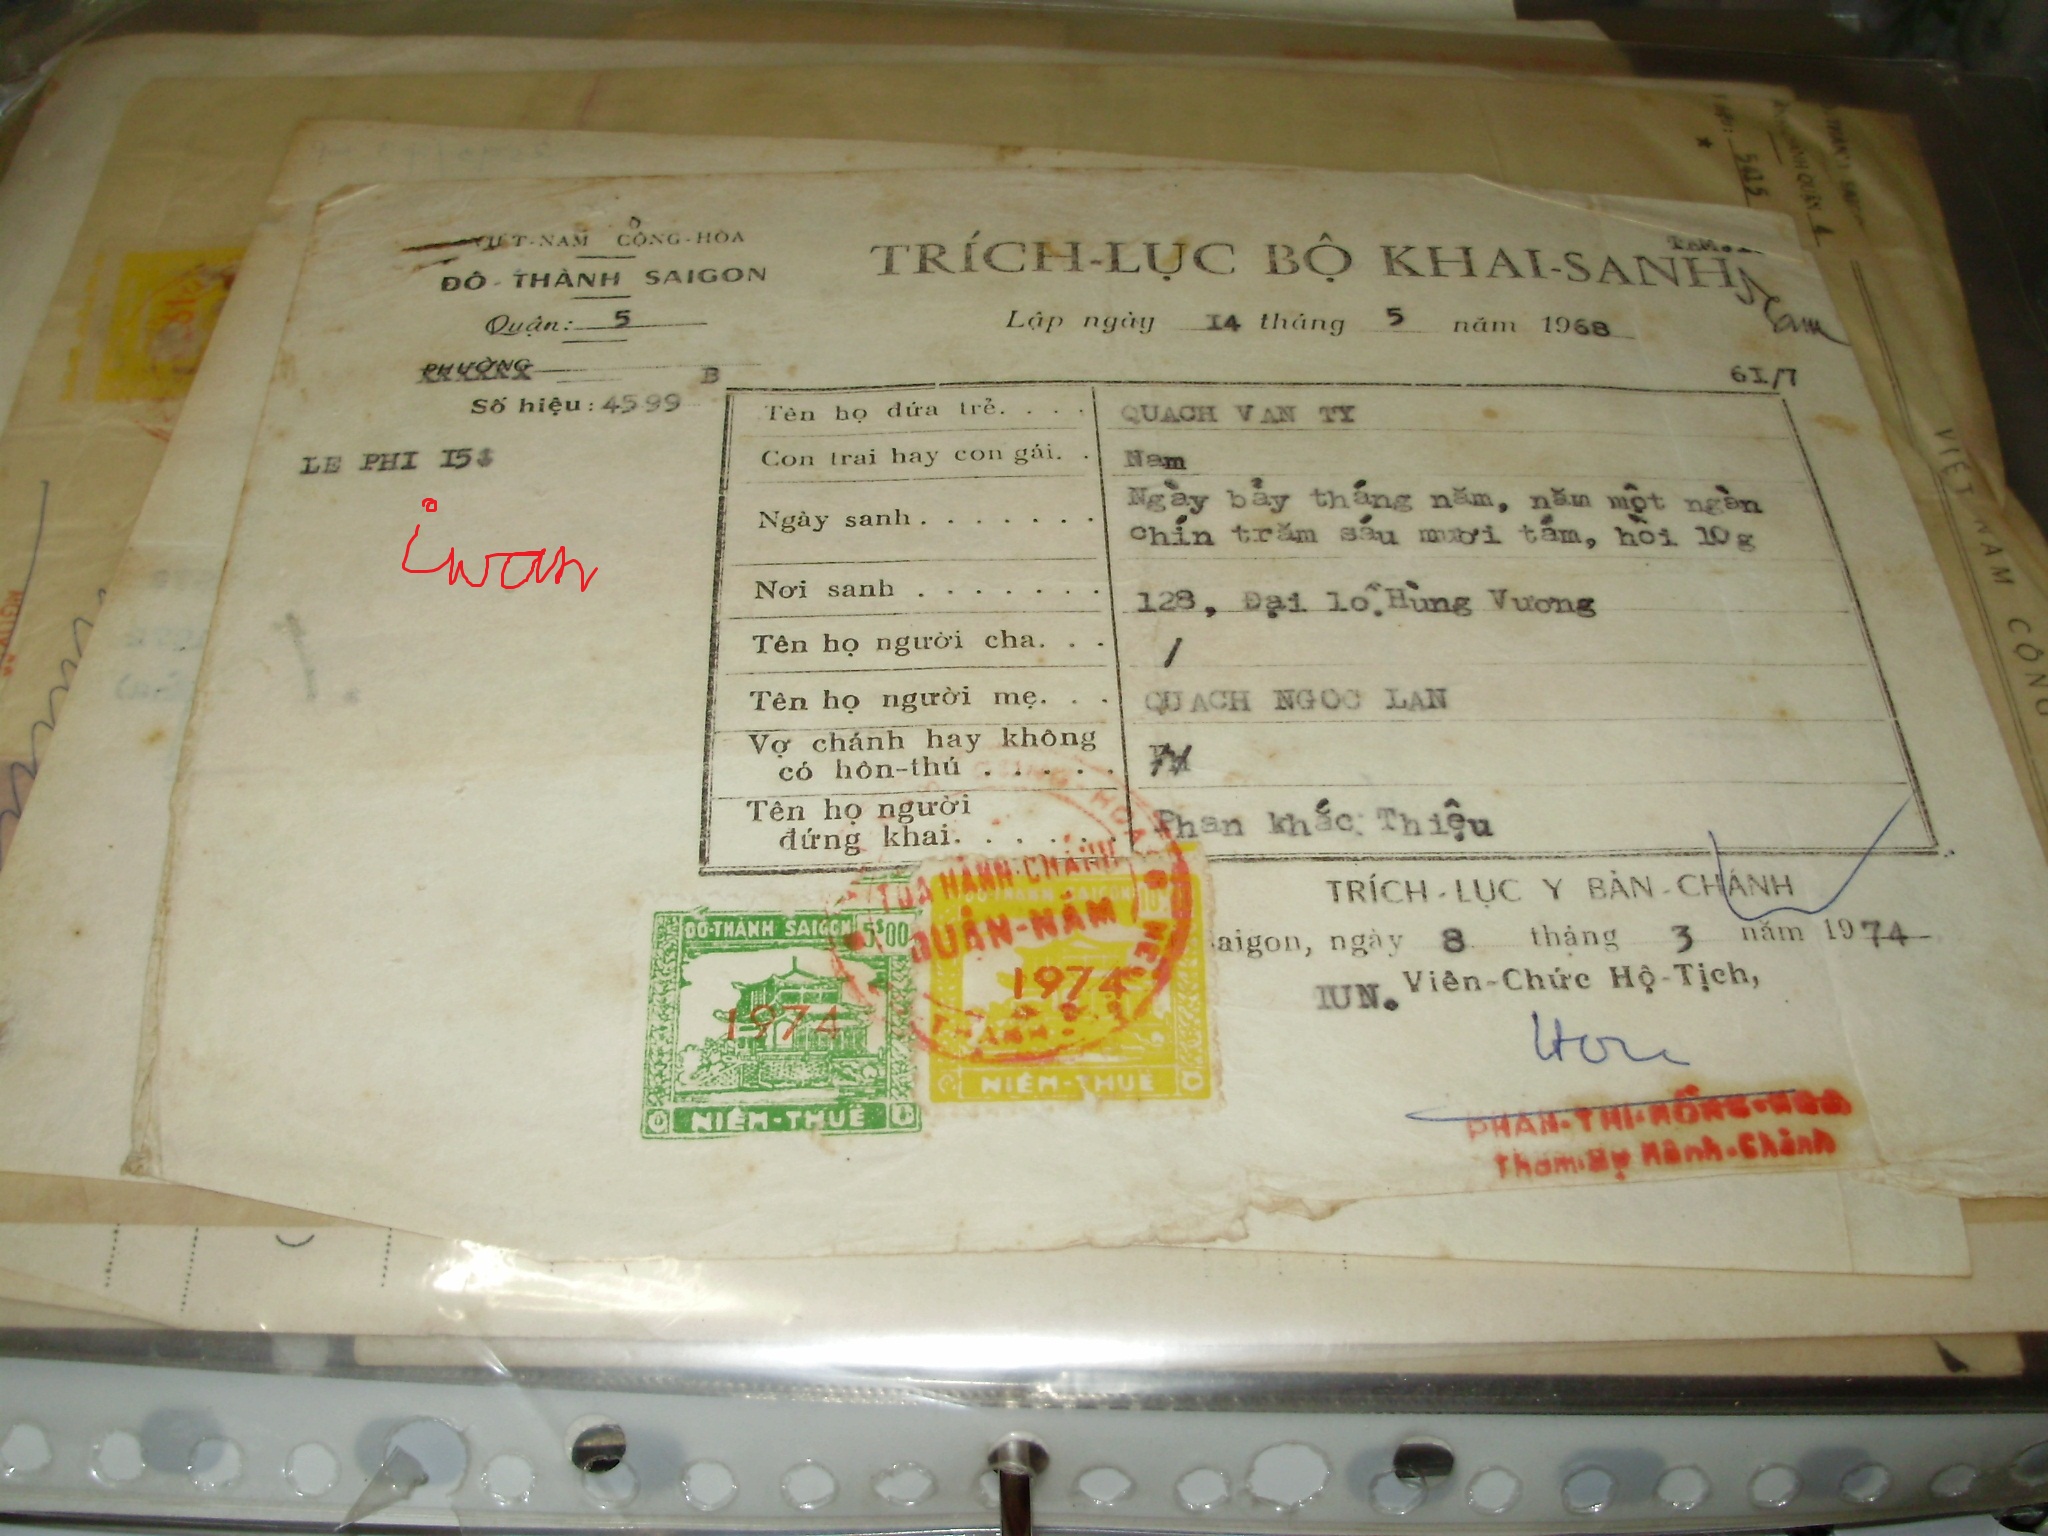 VIỆT-NAM CỘNG-HÒA
ĐÔ-THÀNH SAIGON
Quận: 5
PHƯỜNG
B
Số hiệu: 4599
LE PHI 15$
iwan
TRÍCH-LỤC BỘ KHAI-SANH
Lập ngày 14 tháng 5 năm 1968
61/7
Tên họ đứa trẻ. . . . QUACH VAN TY
Con trai hay con gái. . Nam
Ngày sanh . . . . . . . Ngày bảy tháng năm, năm một ngàn
chín trăm sáu mươi tám, hồi 10g
Nơi sanh . . . . . . . 128, Đại lộ Hùng Vương
Tên họ người cha. . . /
Tên họ người mẹ. . . QUACH NGOC LAN
Vợ chánh hay không
có hôn-thú . . . . .
Tên họ người
đứng khai. . . . . . Phan khắc Thiệu
TRÍCH-LỤC Y BẢN-CHÁNH
Saigon, ngày 8 tháng 3 năm 1974
IUN. Viên-Chức Hộ-Tịch,
PHAN-THỊ-HỒNG-HOA
Tham-Sự Hành-Chánh
ĐÔ-THÀNH SAIGON 5$00
1974
NIÊM-THUẾ
TÒA HÀNH-CHÁNH
QUẬN-NĂM
1974
NIÊM-THUẾ
5415
VIỆT NAM CỘNG